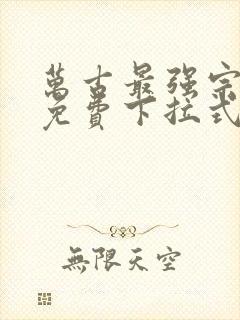 萬古最强宗
免費下拉式
無限天空